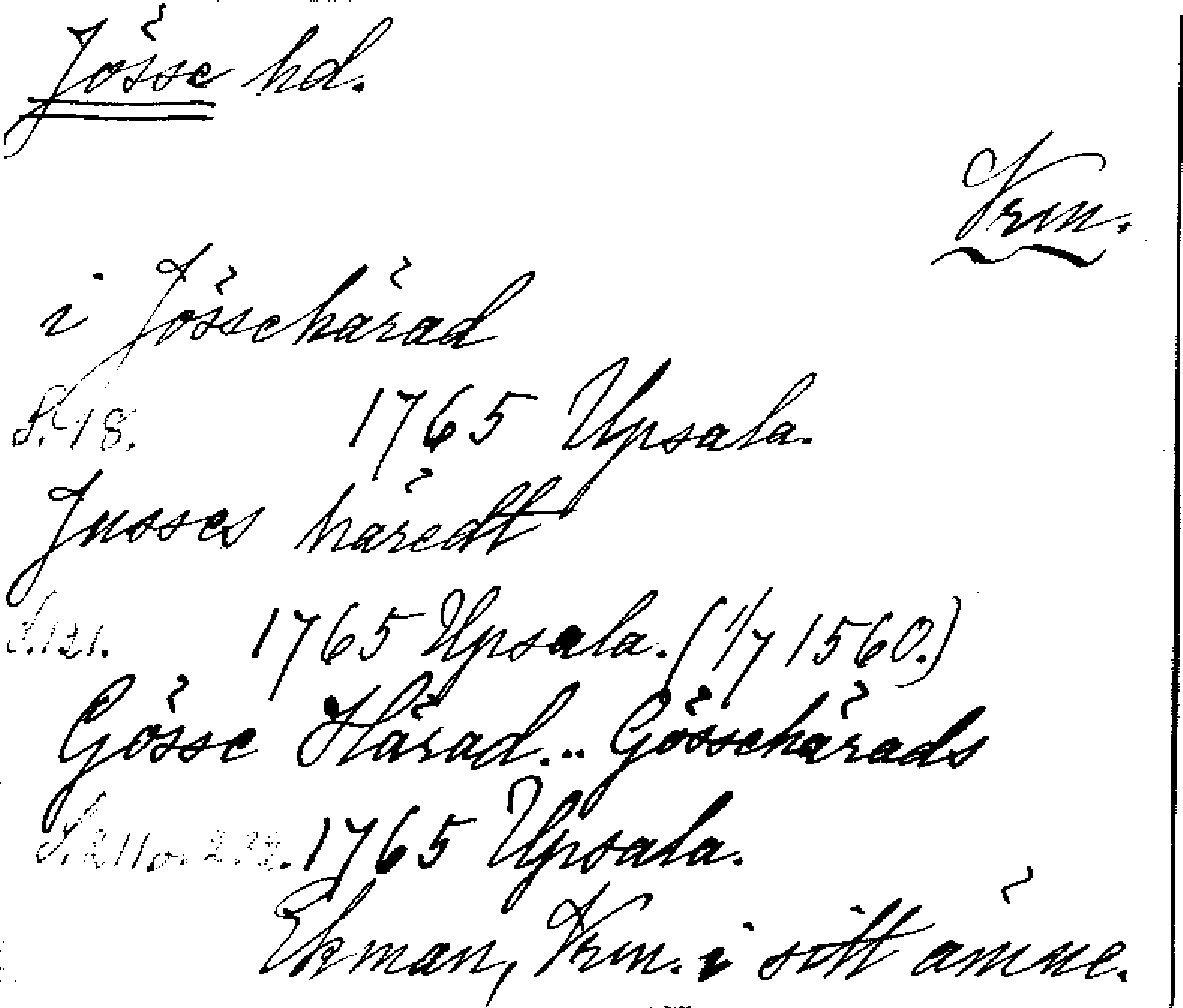 Jösse hd.
Vrm.
i Jössehärad
S. 18. 1765 Upsala.
Jusses häredt
S. 121. 1765 Upsala. (1/7 1560.)
Gösse Härad... Gössehärads
S. 211 o. 1765 Upsala.
Ekman, Vrm. i sitt ämne.